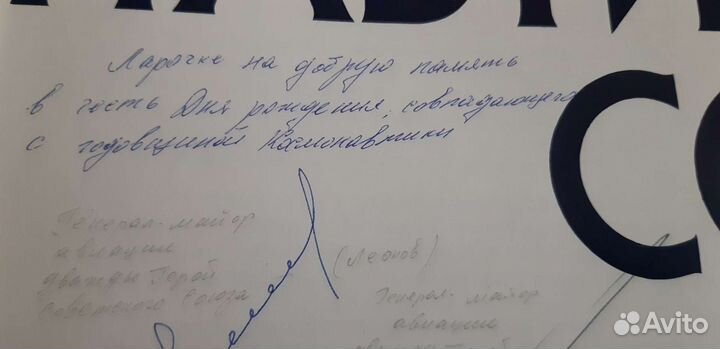 Ларочке на добрую память
в честь Дня рождения, совпадающего
с годовщиной Космонавтики
Генерал-майор
авиации
дважды Герой
Советского Союза
(Леонов)
Генерал-майор
авиации
СО
Avito